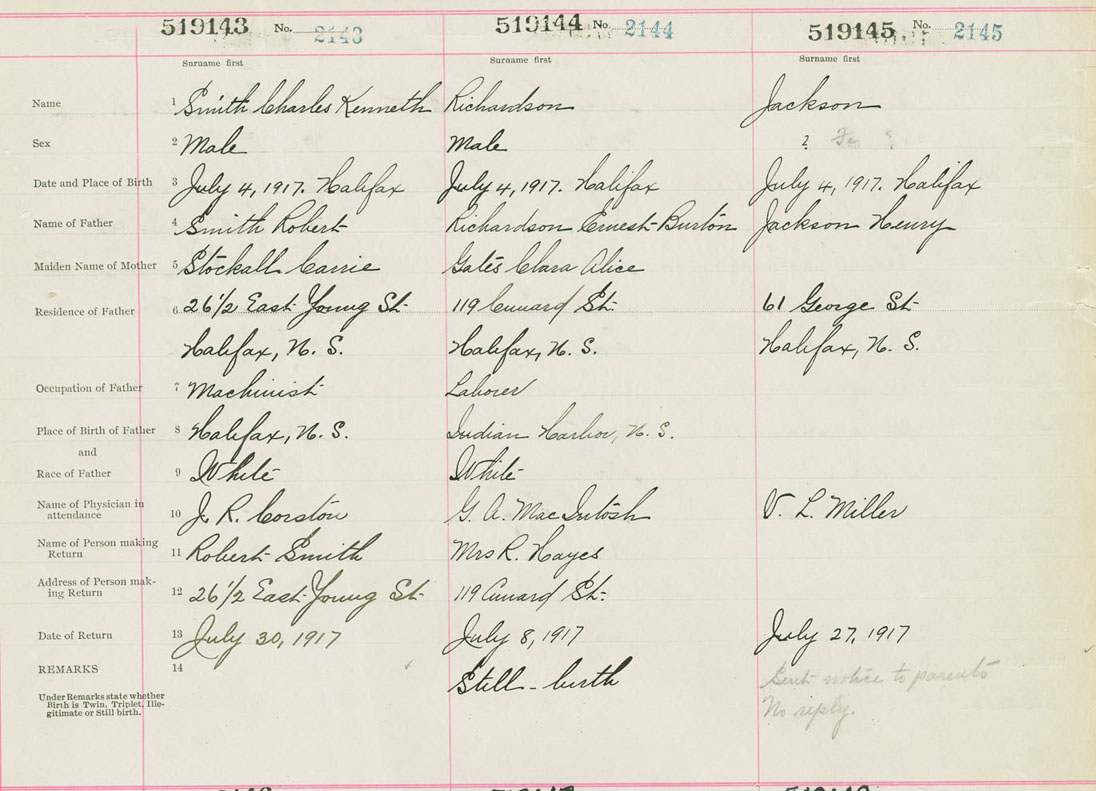 519143 No. 2143 519144 No. 2144 519145 No. 2145
Surname first Surname first Surname first
Name 1 Smith Charles Kenneth Richardson Jackson
Sex 2 Male Male ? Fe ?
Date and Place of Birth 3 July 4, 1917. Halifax July 4, 1917. Halifax July 4, 1917. Halifax
Name of Father 4 Smith Robert Richardson Ernest Burton Jackson Henry
Maiden Name of Mother 5 Stockall Carrie Gates Clara Alice
Residence of Father 6 26 1/2 East Young St. 119 Cunard St. 61 George St
Halifax, N. S. Halifax, N. S. Halifax, N. S.
Occupation of Father 7 Machinist Laborer
Place of Birth of Father 8 Halifax, N. S. Indian Harbor, N. S.
and
Race of Father 9 White White
Name of Physician in
attendance 10 J. R. Corston G. A. MacIntosh V. L. Miller
Name of Person making
Return 11 Robert Smith Mrs R. Hayes
Address of Person mak-
ing Return 12 26 1/2 East Young St. 119 Cunard St.
Date of Return 13 July 30, 1917 July 8, 1917 July 27, 1917
REMARKS 14
Still-birth Sent notice to parents
Under Remarks state whether
Birth is Twin, Triplet, Ille-
gitimate or Still birth. No reply.